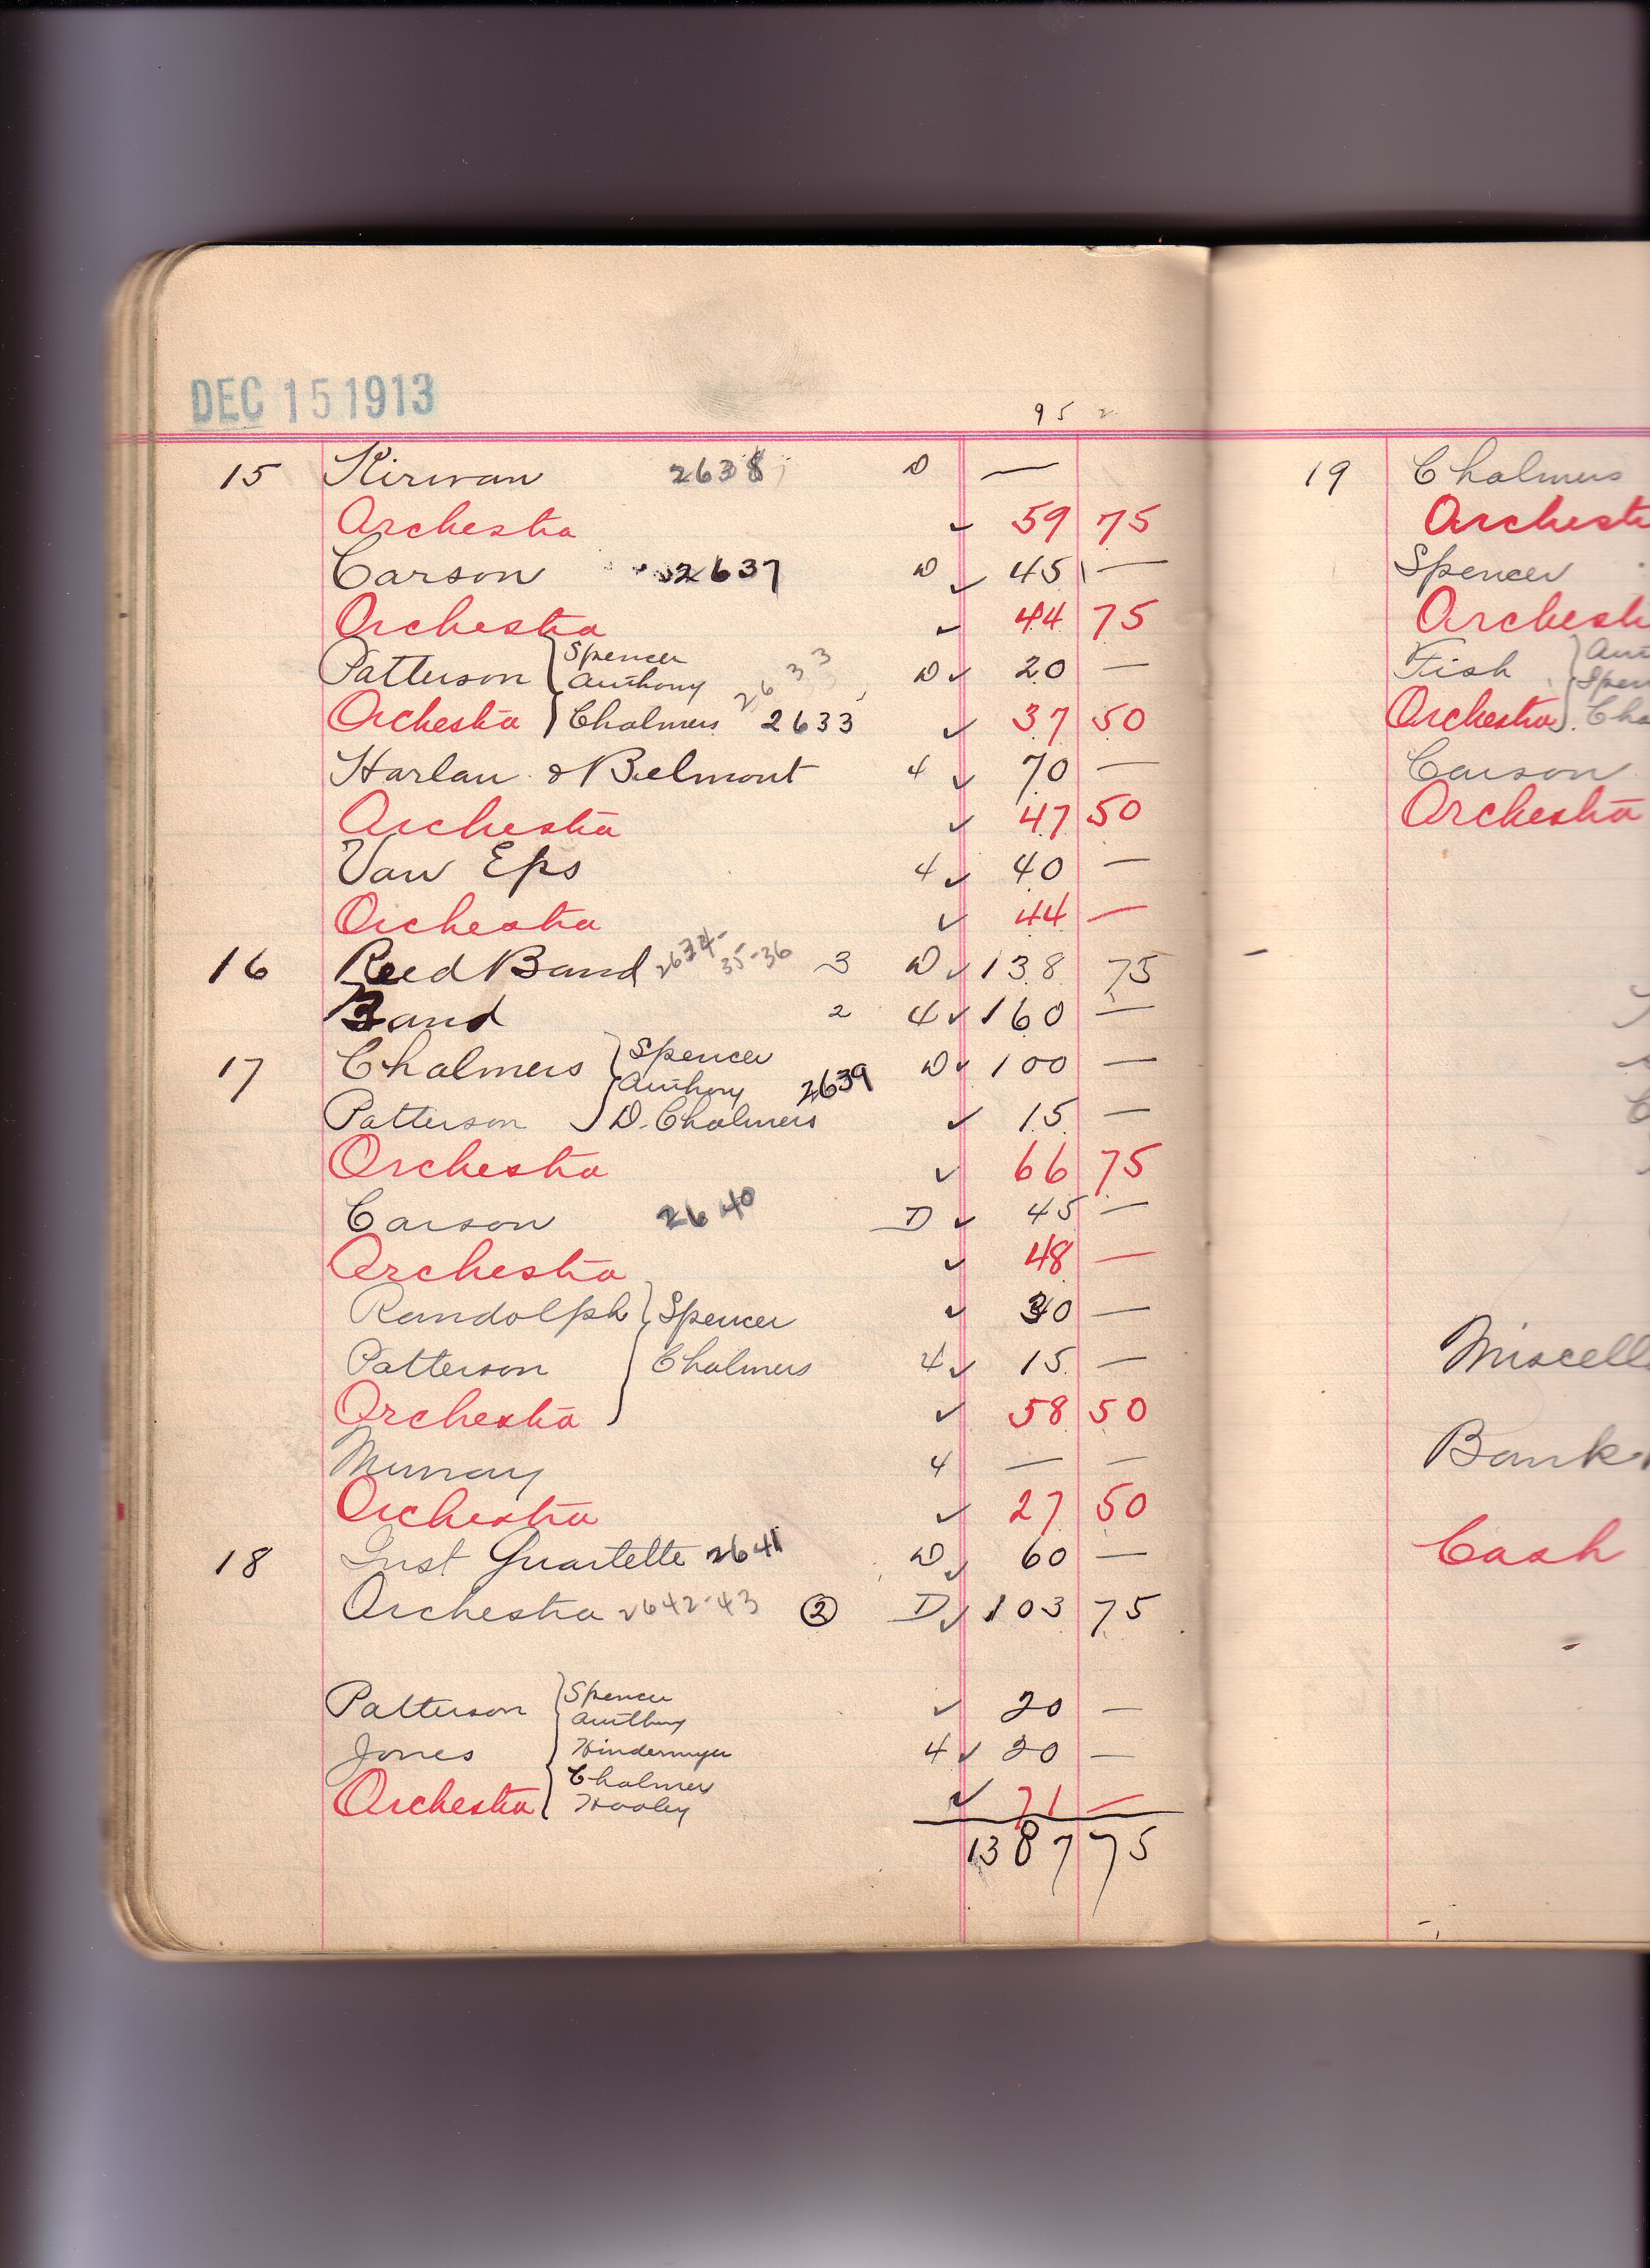 DEC 15 1913
9 5 2
15 Kirwan 2638 D —
Orchestra ✓ 59 75
Carson 2637 D ✓ 45 —
Orchestra ✓ 44 75
Patterson { Spencer
Anthony 2633 D ✓ 20 —
Orchestra } Chalmers 2633 ✓ 37 50
Harlan & Belmont 4 ✓ 70 —
Orchestra ✓ 47 50
Van Eps 4 ✓ 40 —
Orchestra ✓ 44 —
16 Reed Band 2634-35-36 3 D ✓ 138 75
Band 2 4 ✓ 160 —
17 Chalmers } Spencer D ✓ 100 —
Anthony 2639
Patterson } D. Chalmers ✓ 15 —
Orchestra ✓ 66 75
Carson 2640 D ✓ 45 —
Orchestra ✓ 48 —
Randolph } Spencer ✓ 30 —
Patterson Chalmers 4 ✓ 15 —
Orchestra } ✓ 58 50
Murray 4 — —
Orchestra ✓ 27 50
18 Inst Quartette 2641 D ✓ 60 —
Orchestra 2642-43 2 D ✓ 103 75
Patterson } Spencer ✓ 20 —
Anthony
Jones Hindermyer 4 ✓ 20 —
Chalmers
Orchestra { Hooley ✓ 71 —
1387 75
19 Chalmers
Orchest
Spencer
Orchest
Fish } Ant
Spen
Orchestra } Cha
Carson
Orchestra
Miscell
Bank
Cash